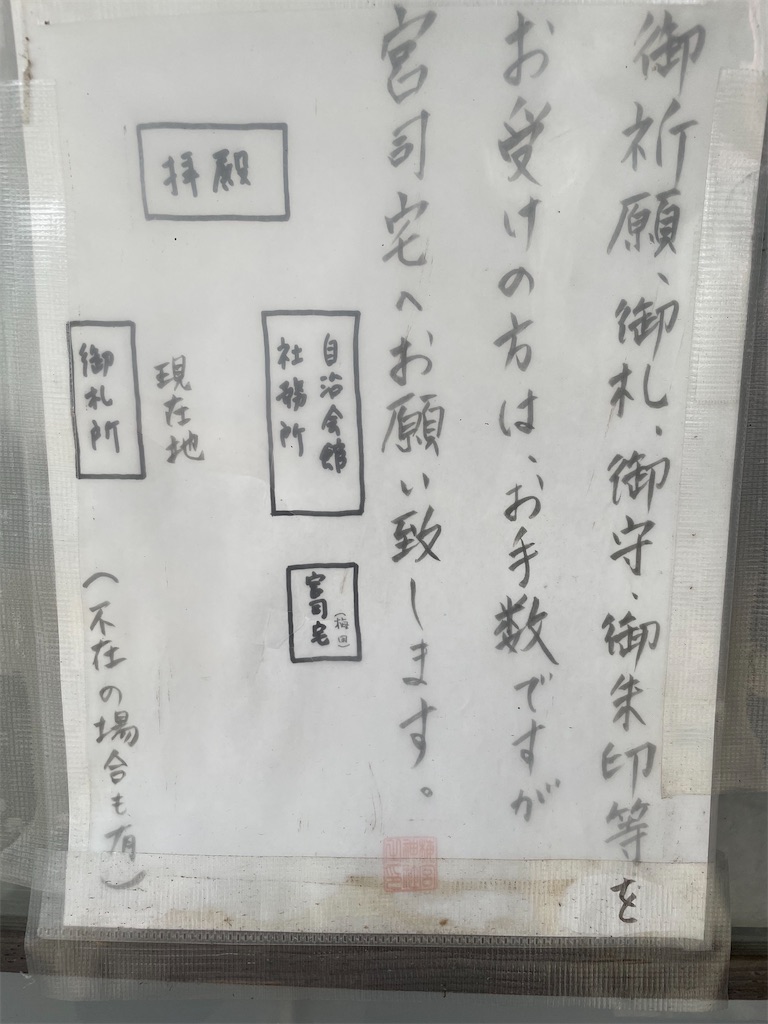 御祈願、御札、御守、御朱印等を
お受けの方は、お手数ですが
宮司宅へお願い致します。
拝殿
自治会館
社務所
宮司宅
(梅田)
現在地
御札所
(不在の場合も有)